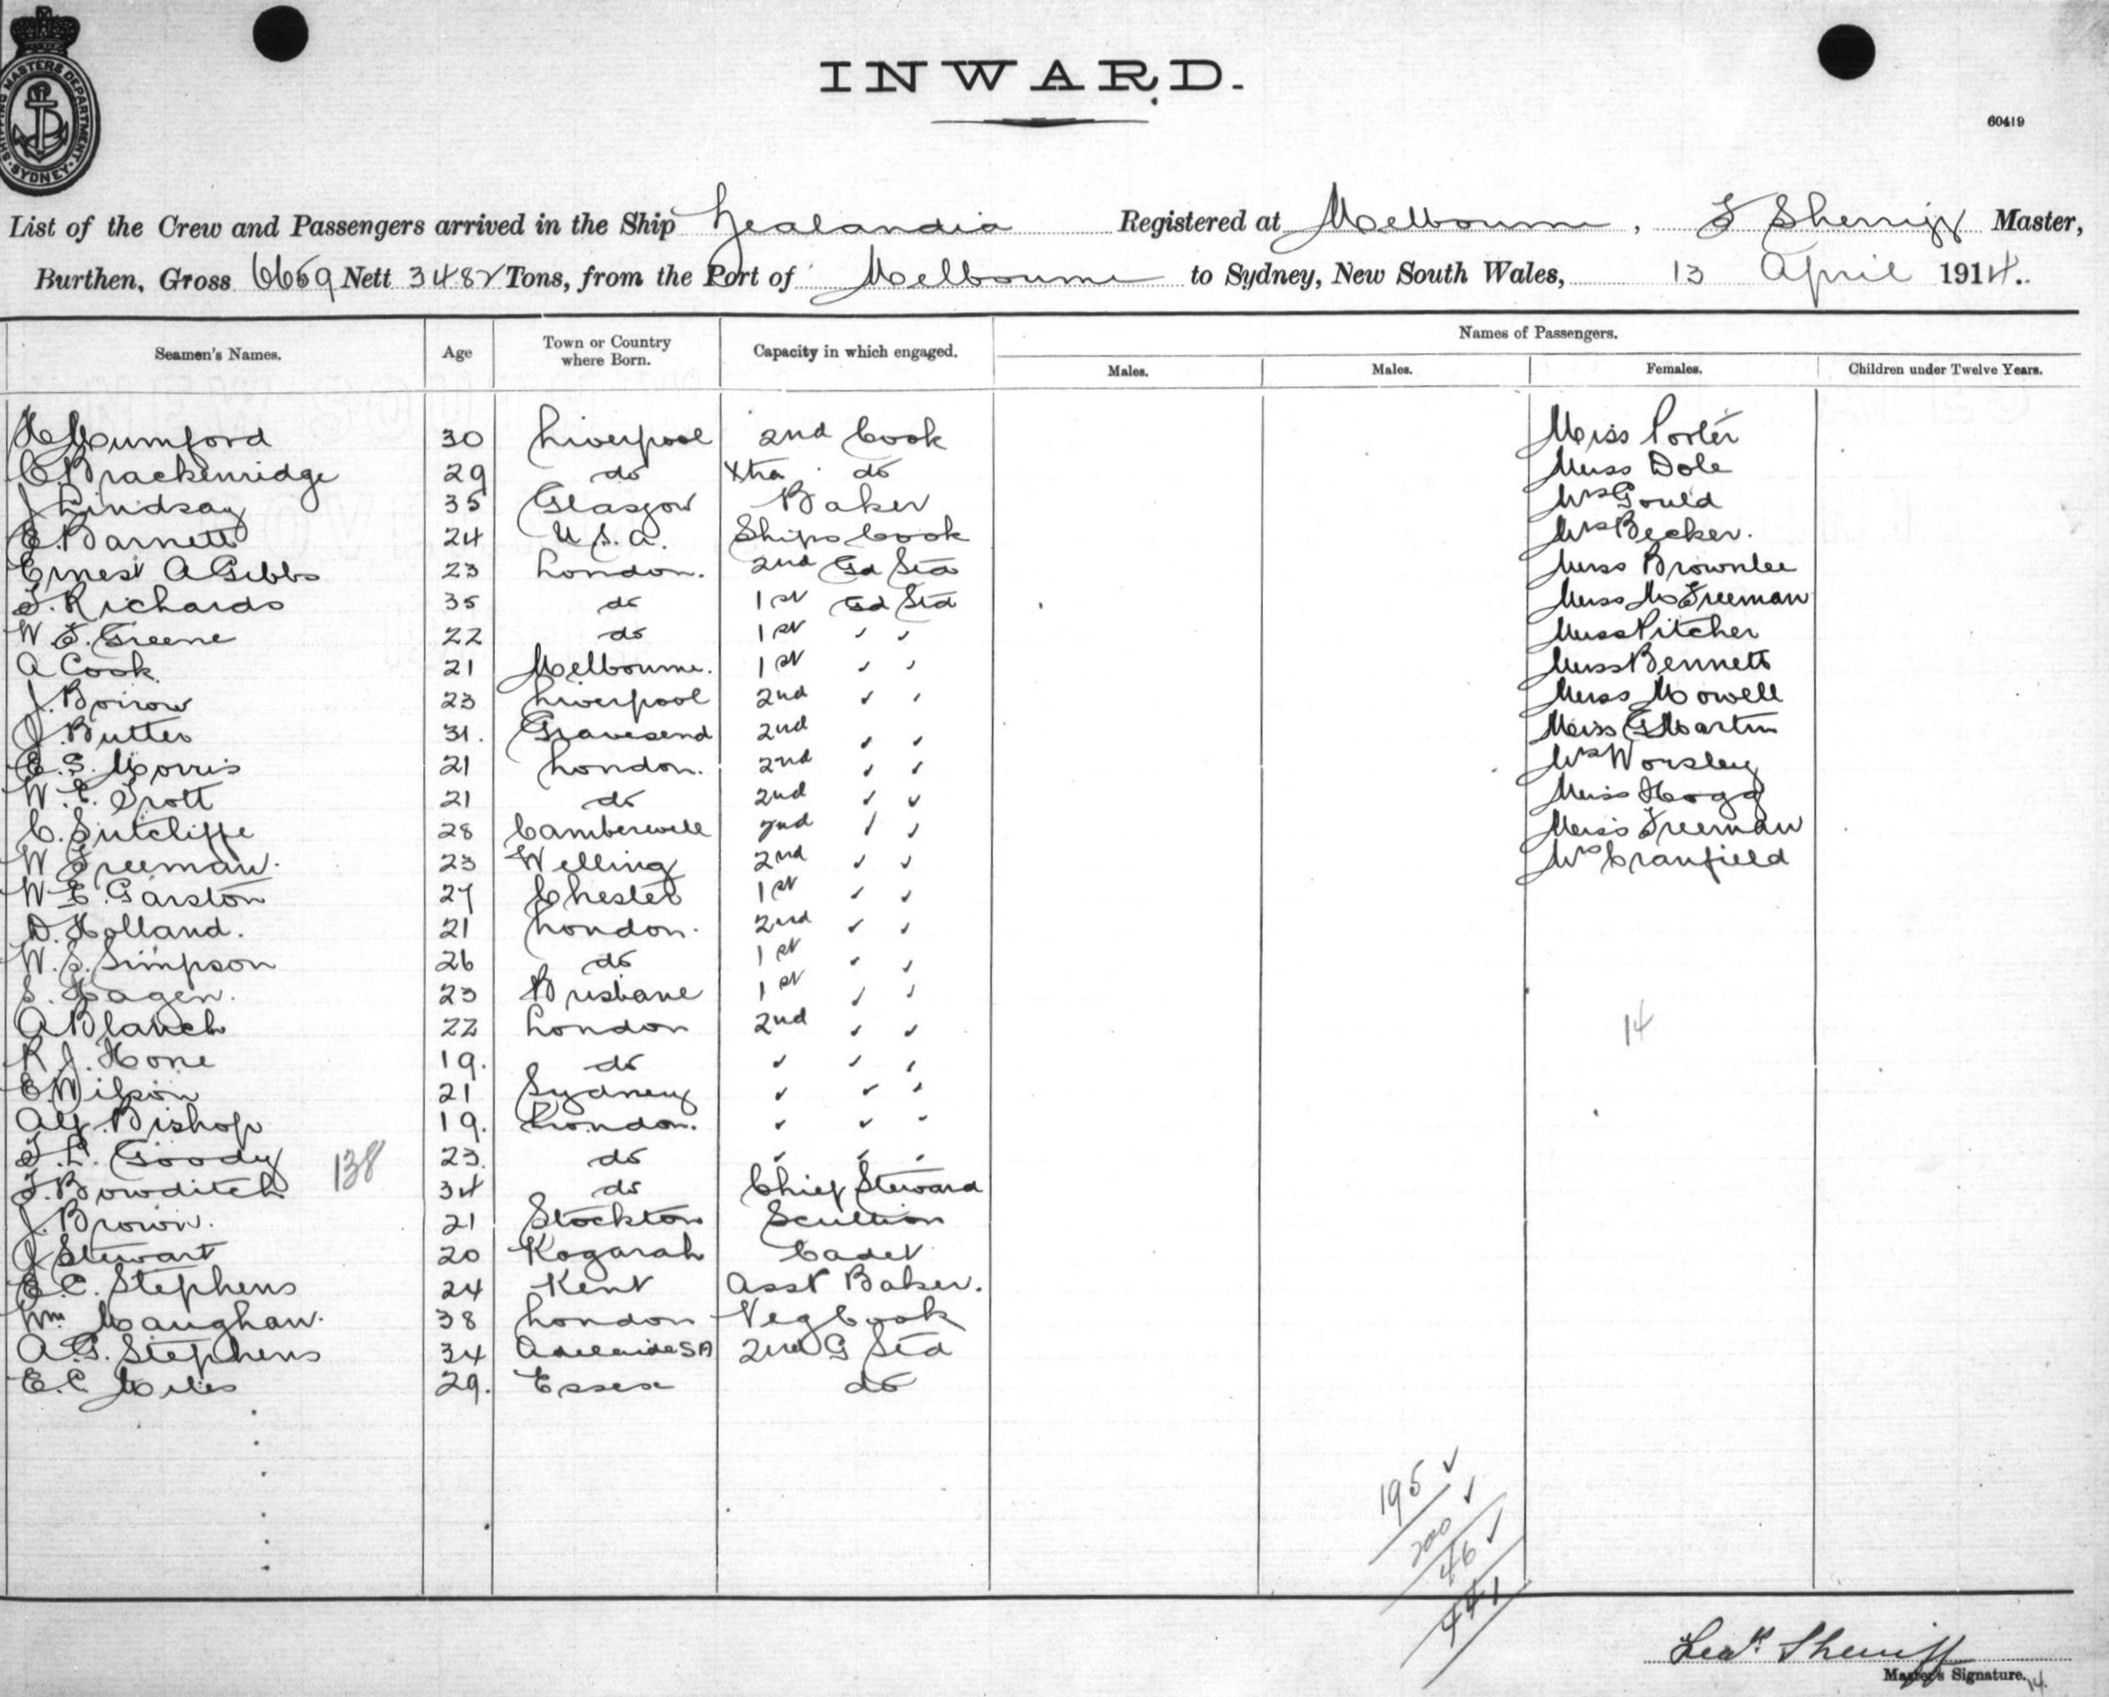 SHIPPING MASTERS DEPARTMENT · SYDNEY ·
INWARD.
60419
List of the Crew and Passengers arrived in the Ship Zealandia Registered at Melbourne, F Sherriff Master,
Burthen, Gross 6659 Nett 3482 Tons, from the Port of Melbourne to Sydney, New South Wales, 13 April 1914.
Seamen's Names. Age Town or Country where Born. Capacity in which engaged. Names of Passengers.
Males. Males. Females. Children under Twelve Years.
H Mumford 30 Liverpool 2nd Cook Miss Porter
C. Brackenridge 29 do Xtra do Miss Dole
J Lindsay 35 Glasgow Baker Mrs Gould
E. Barnett 24 U.S.A. Ships Cook Mrs Becker.
Ernest A Gibbs 23 London. 2nd Gd Std Miss Brownlee
F. Richards 35 do 1st Gd Std Miss M Freeman
W. F. Greene 22 do 1st " " Miss Pitcher
A Cook 21 Melbourne. 1st " " Miss Bennett
J. Borrow 23 Liverpool 2nd " " Miss Mowell
J. Butler 31. Gravesend 2nd " " Miss G Martin
E. S. Morris 21 London. 2nd " " Mrs Worsley
W. E. Trott 21 do 2nd " " Miss Hogg
C. Sutcliffe 28 Camberwell 2nd " " Miss Freeman
W Freeman. 23 Welling 2nd " " Mrs Cranfield
W. E. Garston 27 Chester 1st " "
D. Holland. 21 London. 2nd " "
W. S. Simpson 26 do 1st " "
S. Hagen. 23 Brisbane 1st " "
A Blanch 22 London 2nd " " 14
R. J. Hone 19. do " " "
E Wilson 21 Sydney " " "
Alf. Bishop 19. London. " " "
F. L. Goody 138 23. do " " "
F. Bowditch 34 do Chief Steward
J. Brown. 21 Stockton Scullion
J Stewart 20 Kogarah Cadet
E. C. Stephens 24 Kent Asst Baker.
Wm Maughan. 38 London Veg Cook
A. G. Stephens 34 Adelaide SA 2nd G Std
E. C. Miles 29. Essex do
195
200
46
441
Fredk Sherriff
Master's Signature.
14